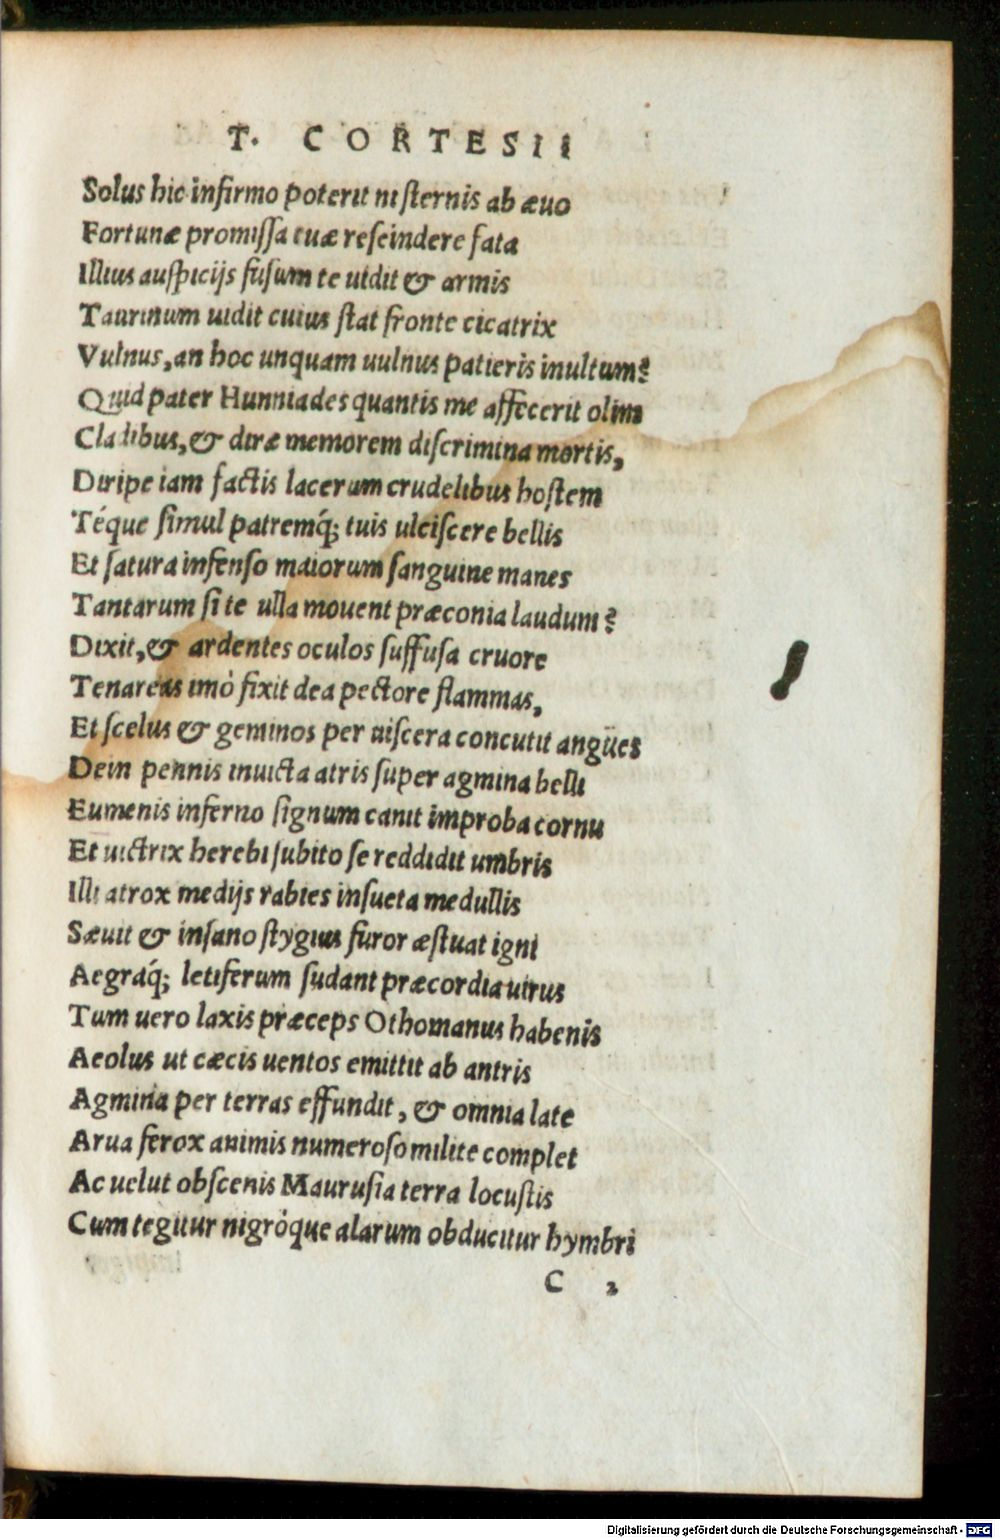 T. CORTESII
Solus hic infirmo poterit ni sternis ab æuo
Fortunæ promissa tuæ reseindere fata
Illius auspicijs fusum te uidit & armis
Taurinum uidit cuius stat fronte cicatrix
Vulnus, an hoc unquam uulnus patieris inultum?
Quid pater Hunniades quantis me affecerit olim
Cladibus, & diræ memorem discrimina mortis,
Diripe iam factis lacerum crudelibus hostem
Téque simul patremq́; tuis ulciscere bellis
Et satura infenso maiorum sanguine manes
Tantarum si te ulla mouent præconia laudum?
Dixit, & ardentes oculos suffusa cruore
Tenareas imò fixit dea pectore flammas,
Et scelus & geminos per uiscera concutit angües
Dein pennis inuicta atris super agmina belli
Eumenis inferno signum canit improba cornu
Et uictrix herebi subito se reddidit umbris
Illi atrox medijs rabies insueta medullis
Sæuit & insano stygius furor æstuat igni
Aegraq́; letiferum sudant præcordia uirus
Tum uero laxis præceps Othomanus habenis
Aeolus ut cæcis uentos emittit ab antris
Agmina per terras effundit, & omnia late
Arua ferox animis numeroso milite complet
Ac uelut obscenis Maurusia terra locustis
Cum tegitur nigróque alarum obducitur hymbri
C 2
Digitalisierung gefördert durch die Deutsche Forschungsgemeinschaft - DFG